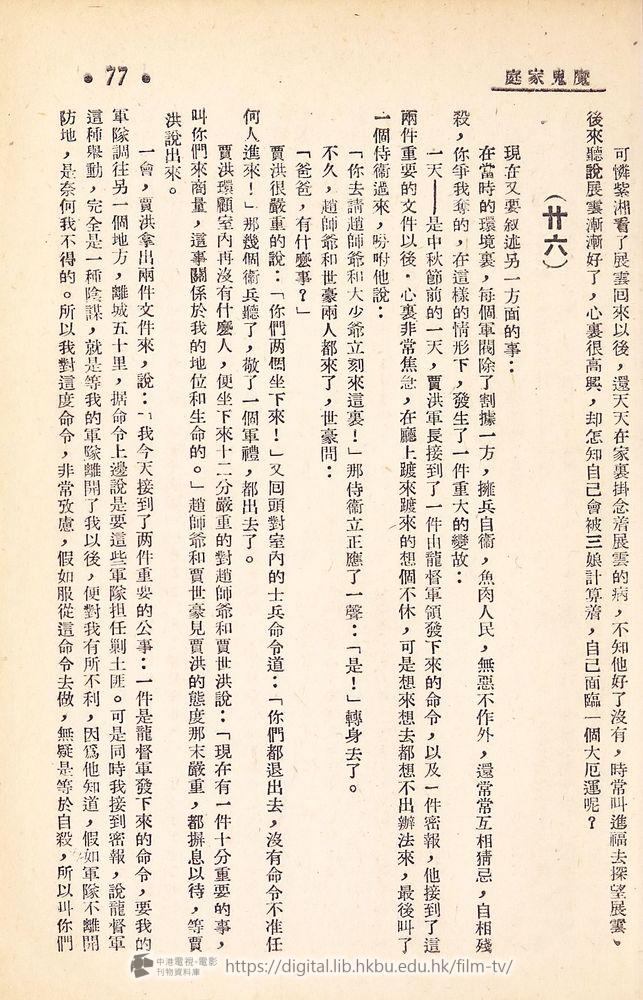 魔鬼家庭
• 77 •
可憐紫湘看了展雲囘來以後，還天天在家裏掛念着展雲的病，不知他好了沒有，時常叫進福去探望展雲。
後來聽說展雲漸漸好了，心裏很高興，却怎知自己會被三娘計算着，自己面臨一個大厄運呢？
（廿六）
現在又要叙述另一方面的事：
在當時的環境裏，每個軍閥除了割據一方，擁兵自衞，魚肉人民，無惡不作外，還常常互相猜忌，自相殘
殺，你爭我奪的，在這樣的情形下，發生了一件重大的變故：
一天——是中秋節前的一天，賈洪軍長接到了一件由龍督軍領發下來的命令，以及一件密報，他接到了這
兩件重要的文件以後。心裏非常焦急，在廳上踱來踱來的想個不休，可是想來想去都想不出辦法來，最後叫了
一個侍衞過來，吩咐他說：
「你去請趙師爺和大少爺立刻來這裏！」那侍衞立正應了一聲：「是！」轉身去了。
不久，趙師爺和世豪兩人都來了，世豪問：
「爸爸，有什麼事？」
賈洪很嚴重的說：「你們两個坐下來！」又囘頭對室內的士兵命令道：「你們都退出去，沒有命令不准任
何人進來！」那幾個衞兵聽了，敬了一個軍禮，都出去了。
賈洪環顧室內再沒有什麼人，便坐下來十二分嚴重的對趙師爺和賈世洪說：「現在有一件十分重要的事，
叫你們來商量，這事關係於我的地位和生命的。」趙師爺和賈世豪見賈洪的態度那末嚴重，都摒息以待，等賈
洪說出來。
一會，賈洪拿出兩件文件來，說：「我今天接到了两件重要的公事：一件是龍督軍發下來的命令，要我的
軍隊調往另一個地方，離城五十里，据命令上邊說是要這些軍隊担任剿土匪。可是同時我接到密報，說龍督軍
這種舉動，完全是一種陰謀，就是等我的軍隊離開了我以後，便對我有所不利，因爲他知道，假如軍隊不離開
防地，是奈何我不得的。所以我對這度命令，非常攷慮，假如服從這命令去做，無疑是等於自殺，所以叫你們
中港電視・電影
刊物資料庫
https://digital.lib.hkbu.edu.hk/film-tv/